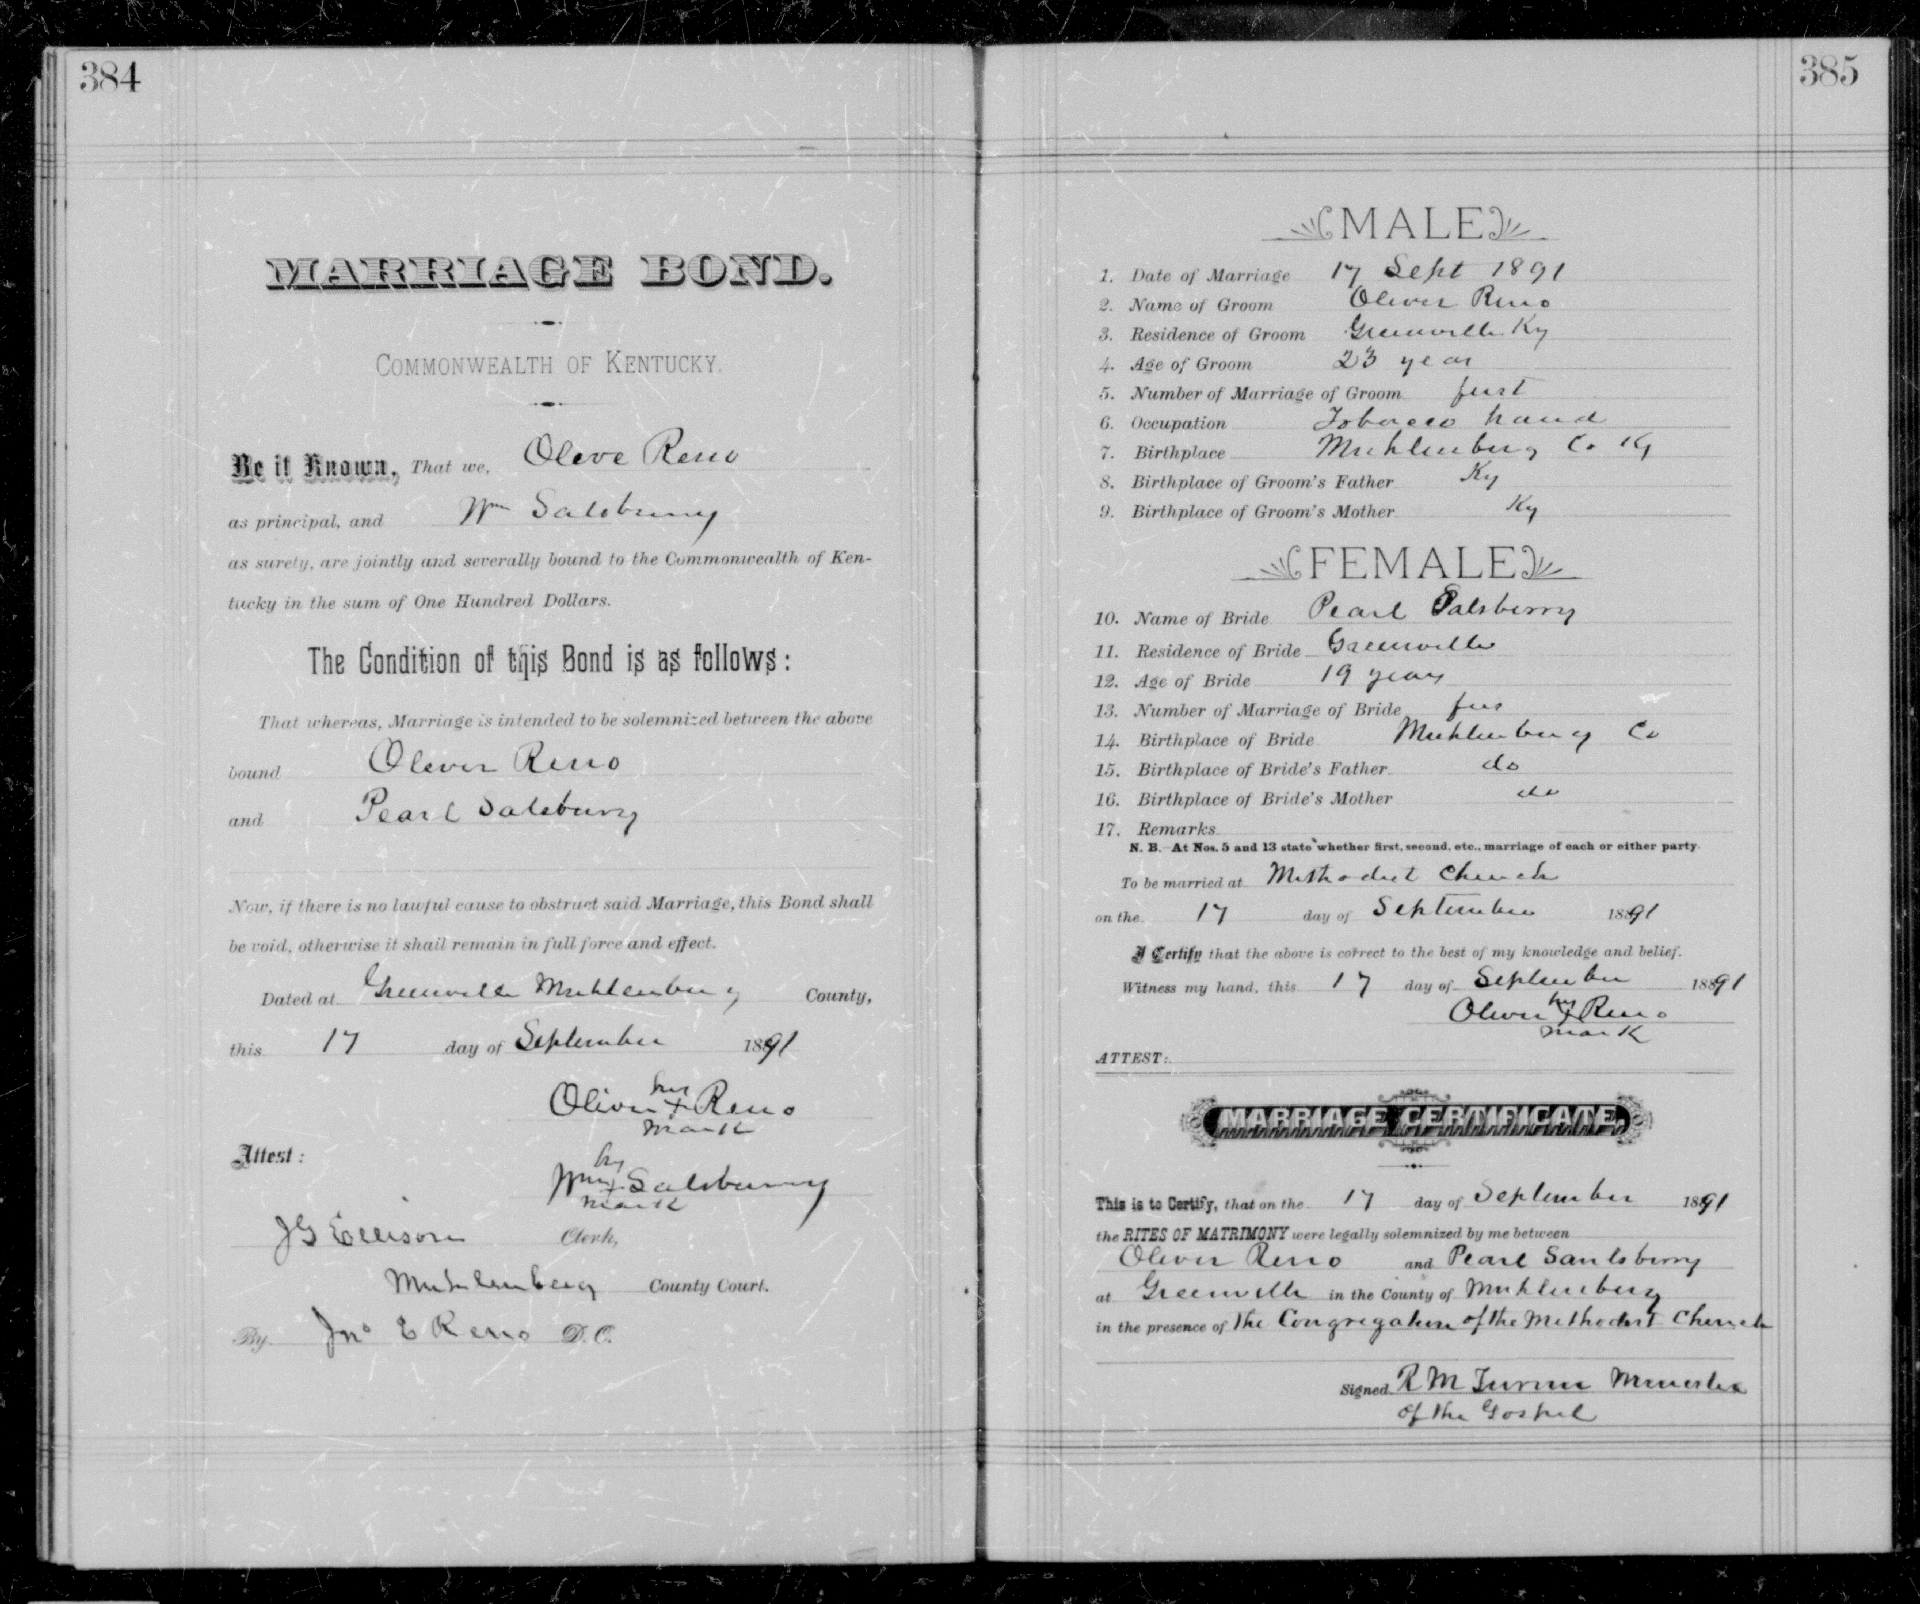 384
MARRIAGE BOND.
COMMONWEALTH OF KENTUCKY.
Be it Known, That we, Oleve Reno
as principal, and Wm Salsburry
as surety, are jointly and severally bound to the Commonwealth of Ken-
tucky in the sum of One Hundred Dollars.
The Condition of this Bond is as follows:
That whereas, Marriage is intended to be solemnized between the above
bound Oliver Reno
and Pearl Salsburry
Now, if there is no lawful cause to obstruct said Marriage, this Bond shall
be void, otherwise it shall remain in full force and effect.
Dated at Greenville Muhlenburg County,
this 17 day of September 1891
his
Oliver x Reno
mark
Attest:
his
Wm x Salsburry
mark
J G Ellison Clerk,
Muhlenberg County Court.
By Jno E Reno D.C.
385
MALE
1. Date of Marriage 17 Sept 1891
2. Name of Groom Oliver Reno
3. Residence of Groom Greenville Ky
4. Age of Groom 23 year
5. Number of Marriage of Groom first
6. Occupation Tobacco hand
7. Birthplace Muhlenburg Co Ky
8. Birthplace of Groom's Father Ky
9. Birthplace of Groom's Mother Ky
FEMALE
10. Name of Bride Pearl Salsberry
11. Residence of Bride Greenville
12. Age of Bride 19 years
13. Number of Marriage of Bride firs
14. Birthplace of Bride Muhlenburg Co
15. Birthplace of Bride's Father do
16. Birthplace of Bride's Mother do
17. Remarks
N. B. At Nos. 5 and 13 state whether first, second, etc., marriage of each or either party.
To be married at Methodist Church
on the 17 day of September 1891
I Certify that the above is correct to the best of my knowledge and belief.
Witness my hand, this 17 day of September 1891
his
Oliver x Reno
mark
ATTEST:
MARRIAGE CERTIFICATE.
This is to Certify, that on the 17 day of September 1891
the RITES OF MATRIMONY were legally solemnized by me between
Oliver Reno and Pearl Saulsberry
at Greenville in the County of Muhlenberg
in the presence of The Congregation of the Methodist Church
Signed R M Turner Minister
of the Gospel